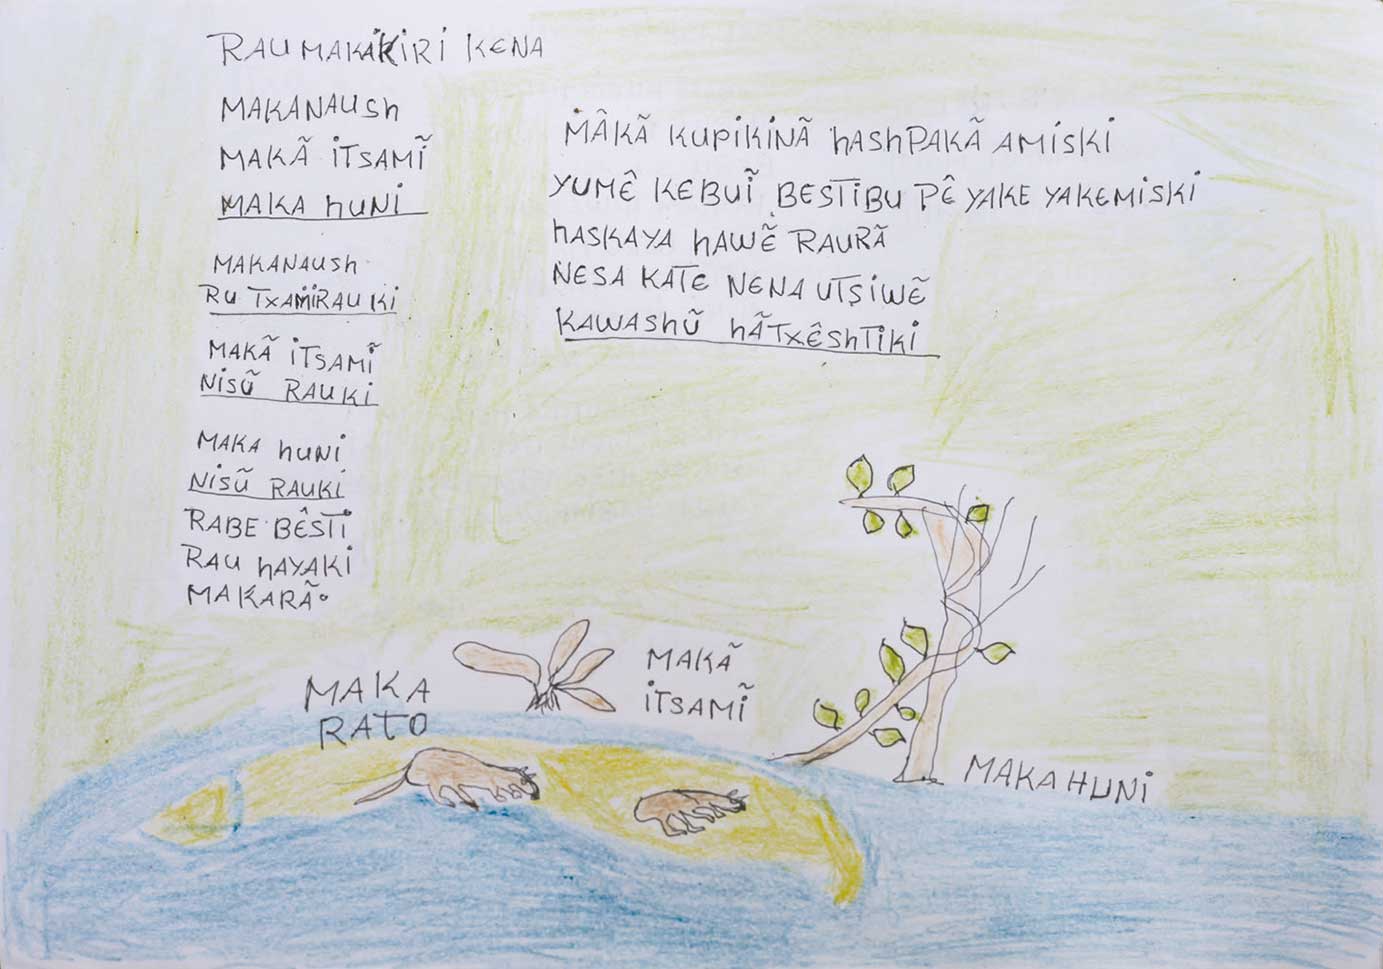 RAU MAKAKIRI KENA
MAKANAUSh
MAKÃ iTSAMĨ
MAKA hUNi
MAKANAUSh
RU TXAMiRAU Ki
MAKÃ iTSAMĨ
NiSŨ RAU Ki
MAKA hUNi
NiSŨ RAUKi
RABE BÊSTi
RAU hAYAKi
MAKARÃ.
MÂKÃ KUPiKiNÃ hAShPAKÃ AMiSKi
YUMÊ KEBUĨ BESTiBU PÊ YAKE YAKEMiSKi
hASKAYA hAWẼ RAURÃ
NESA KATE NENA UTSiWẼ
KAWAShŨ hÃTXÊShTiKi
MAKA
RATO
MAKÃ
iTSAMĨ
MAKA HUNi